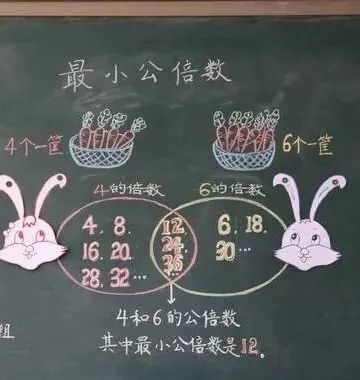 最小公倍数
4个一筐
6个一筐
4的倍数
6的倍数
4、8、
16、20、
28、32…
12、
24、
36…
6、18、
30…
4和6的公倍数
其中最小公倍数是12。
组